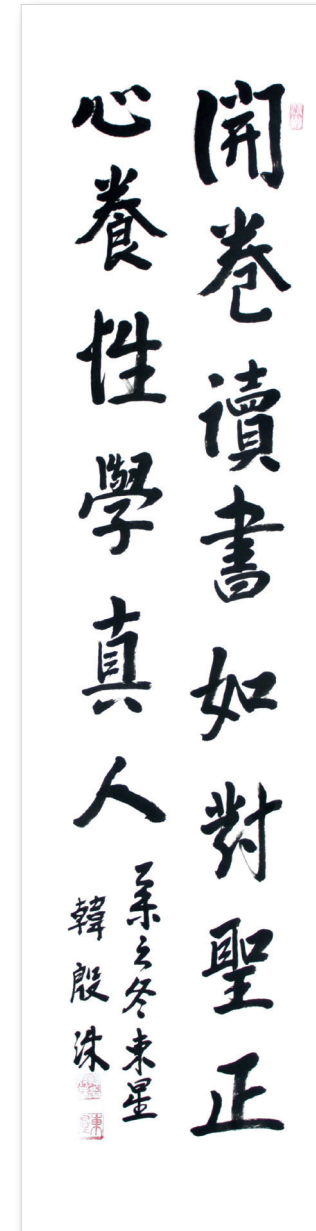 開卷讀書如對聖正
心養性學真人
之冬東星
韓殷洙